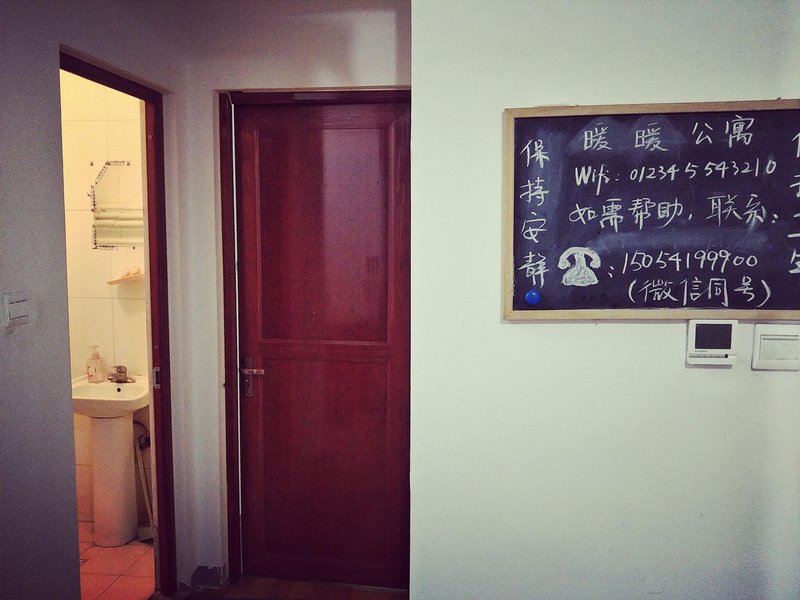 保持安静
暖暖公寓
Wifi: 012345543210
如需帮助, 联系:
: 15054199900
(微信同号)